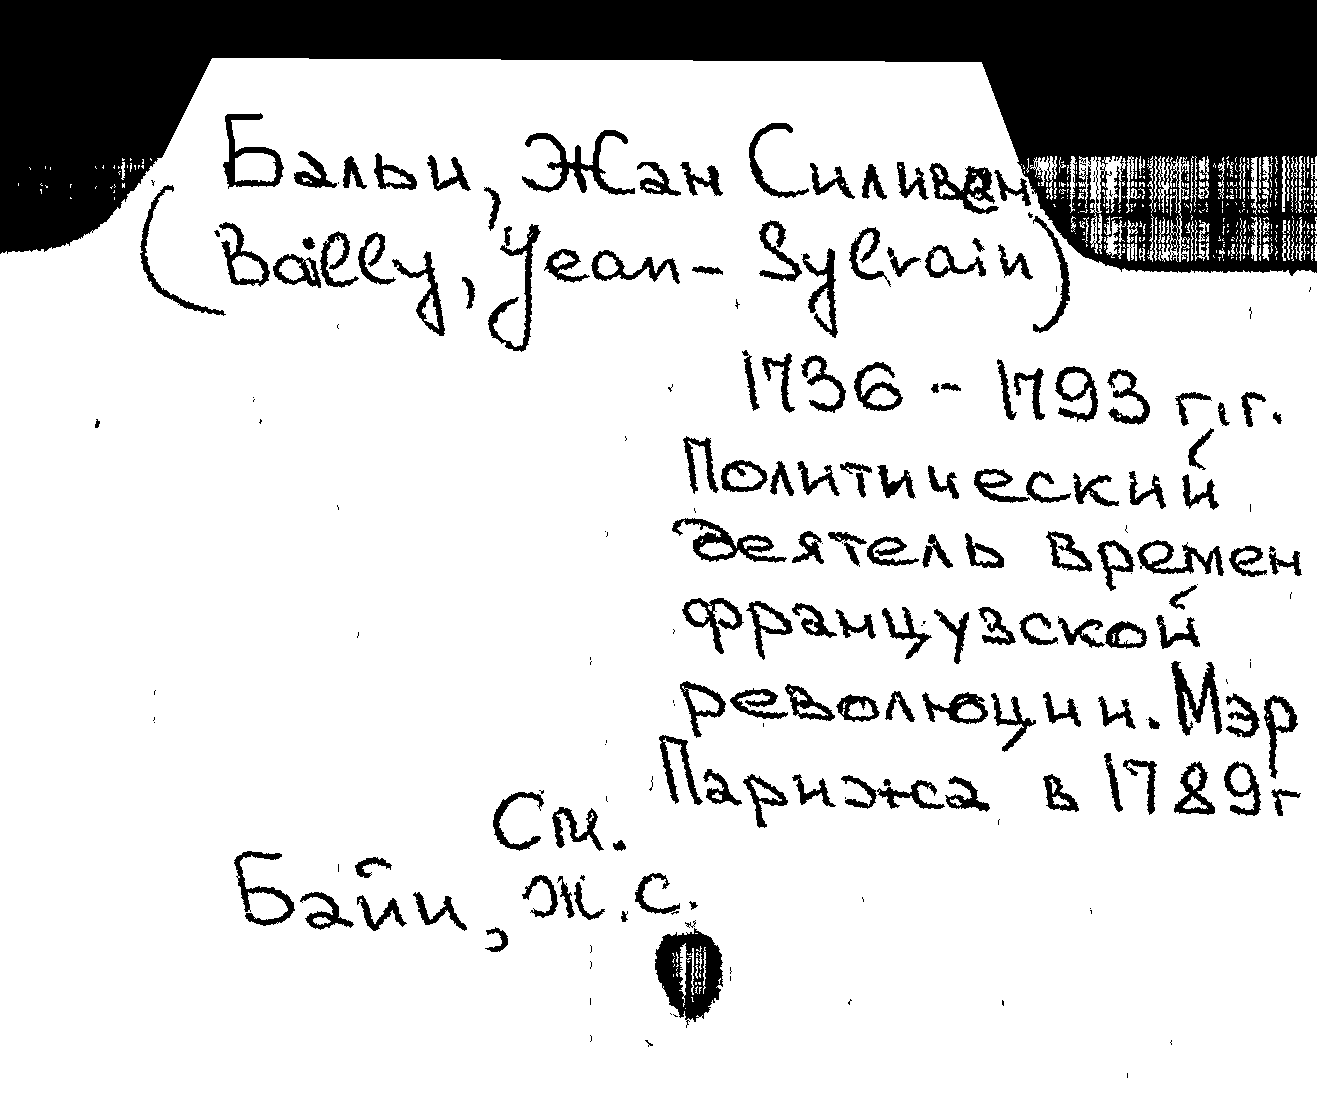 Бальи, Жан Силивен
(Bailly, Jean-Sylvain)
1736 - 1793 г.г.
Политический
деятель времен
французской
революции. Мэр
Парижа в 1789г
См.
Байи, Ж.С.